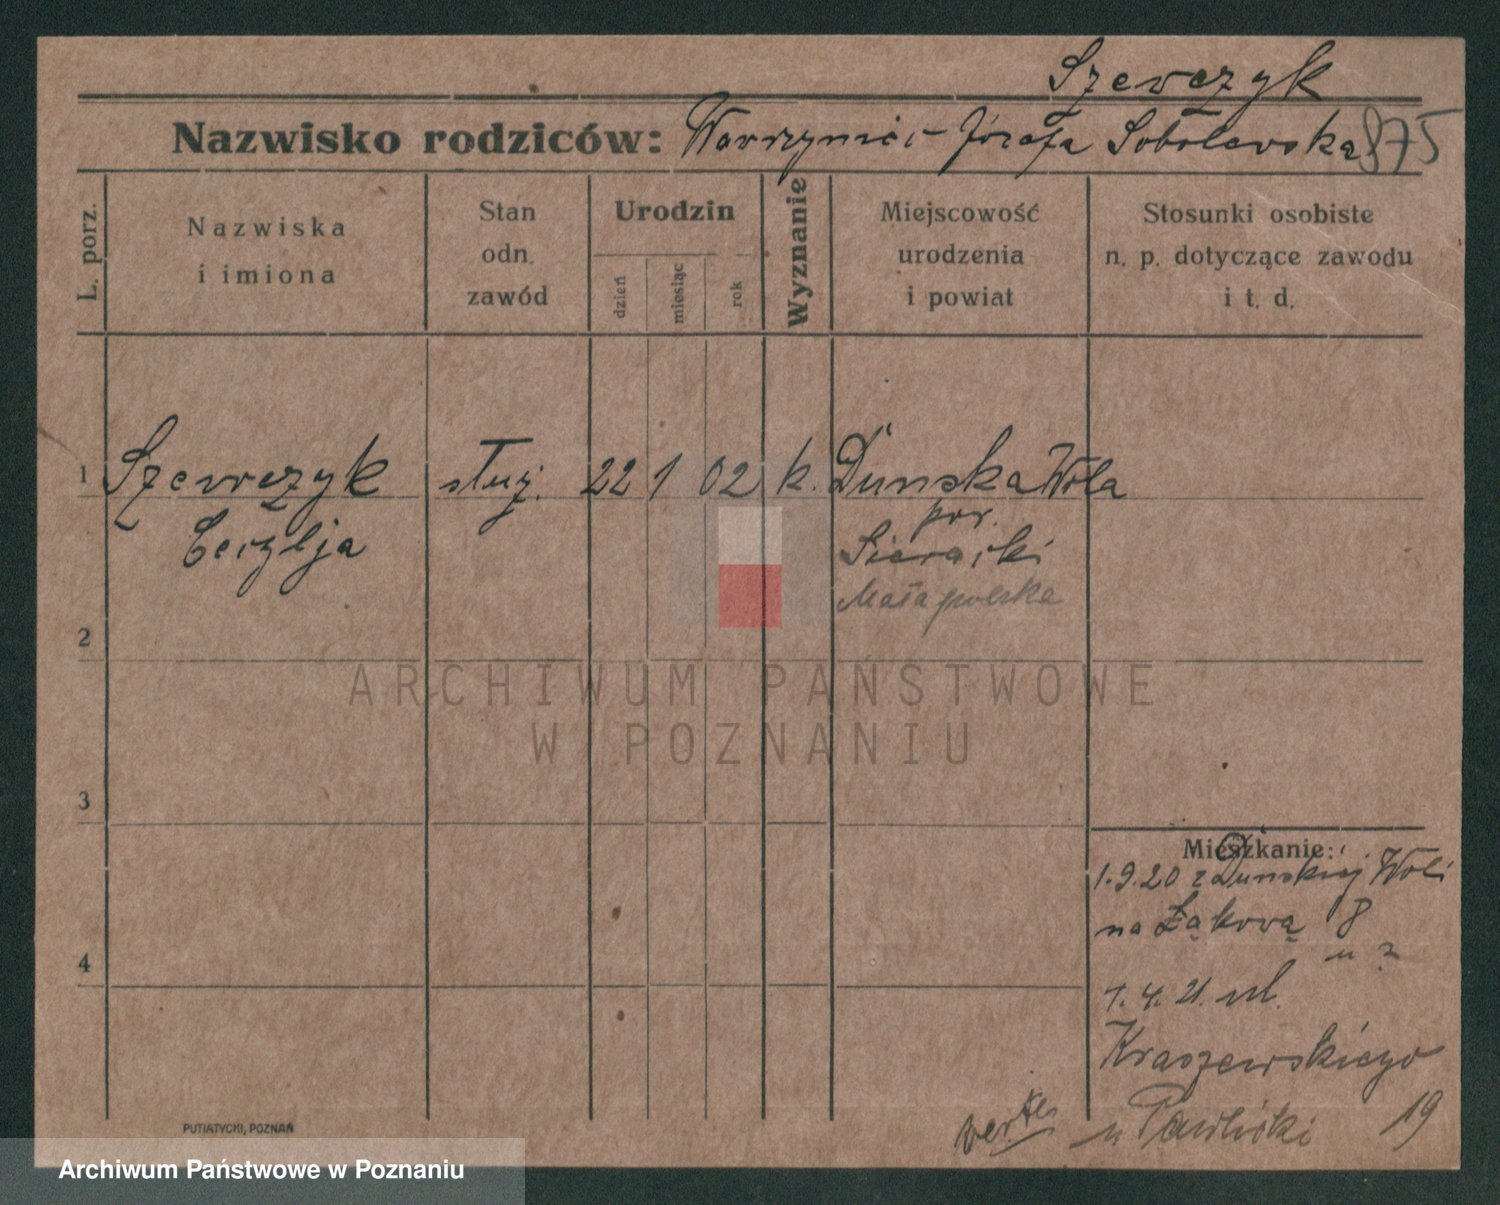 Szewczyk
Nazwisko rodziców: Wawrzyniec i Józefa Sobolewska 875
L. porz.
Nazwiska
i imiona
Stan
odn.
zawód
Urodzin
dzień
miesiąc
rok
Wyznanie
Miejscowość
urodzenia
i powiat
Stosunki osobiste
n. p. dotyczące zawodu
i t. d.
1 Szewczyk służ. 22 1 02 k. Dunska Wola
Cecylja
pow.
Sieracki
Małapolska
2
3
4
Mieszkanie:
1.9.20 z Dunskiej Woli
na Łąkową 8
u
1.4.21. ul.
Kraszewskiego
u Pawlicki 19
PUTIATYCKI, POZNAŃ
ARCHIWUM PAŃSTWOWE
W POZNANIU
Archiwum Państwowe w Poznaniu